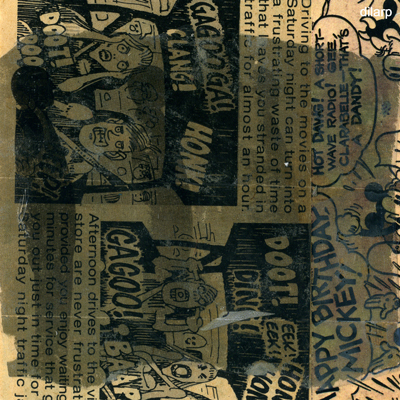 dilarp
Driving to the movies on a
Saturday night can turn into
a frustrating waste of time
that leaves you stranded in
traffic for almost an hour.
GAGOO'GA!
CLANG!
HONK!
DOOT!
HOT DAWG! A SHORT-
WAVE RADIO! GEE,
CLARABELLE—THAT'S
A DANDY!
HAPPY BIRTHDAY,
MICKEY!
DOOT!
EEK!
EEK!
GAGOO!
Afternoon drives to the vi
store are never frustrat
provided you enjoy waiting
minutes for service that g
you out just in time for
Saturday night traffic ja